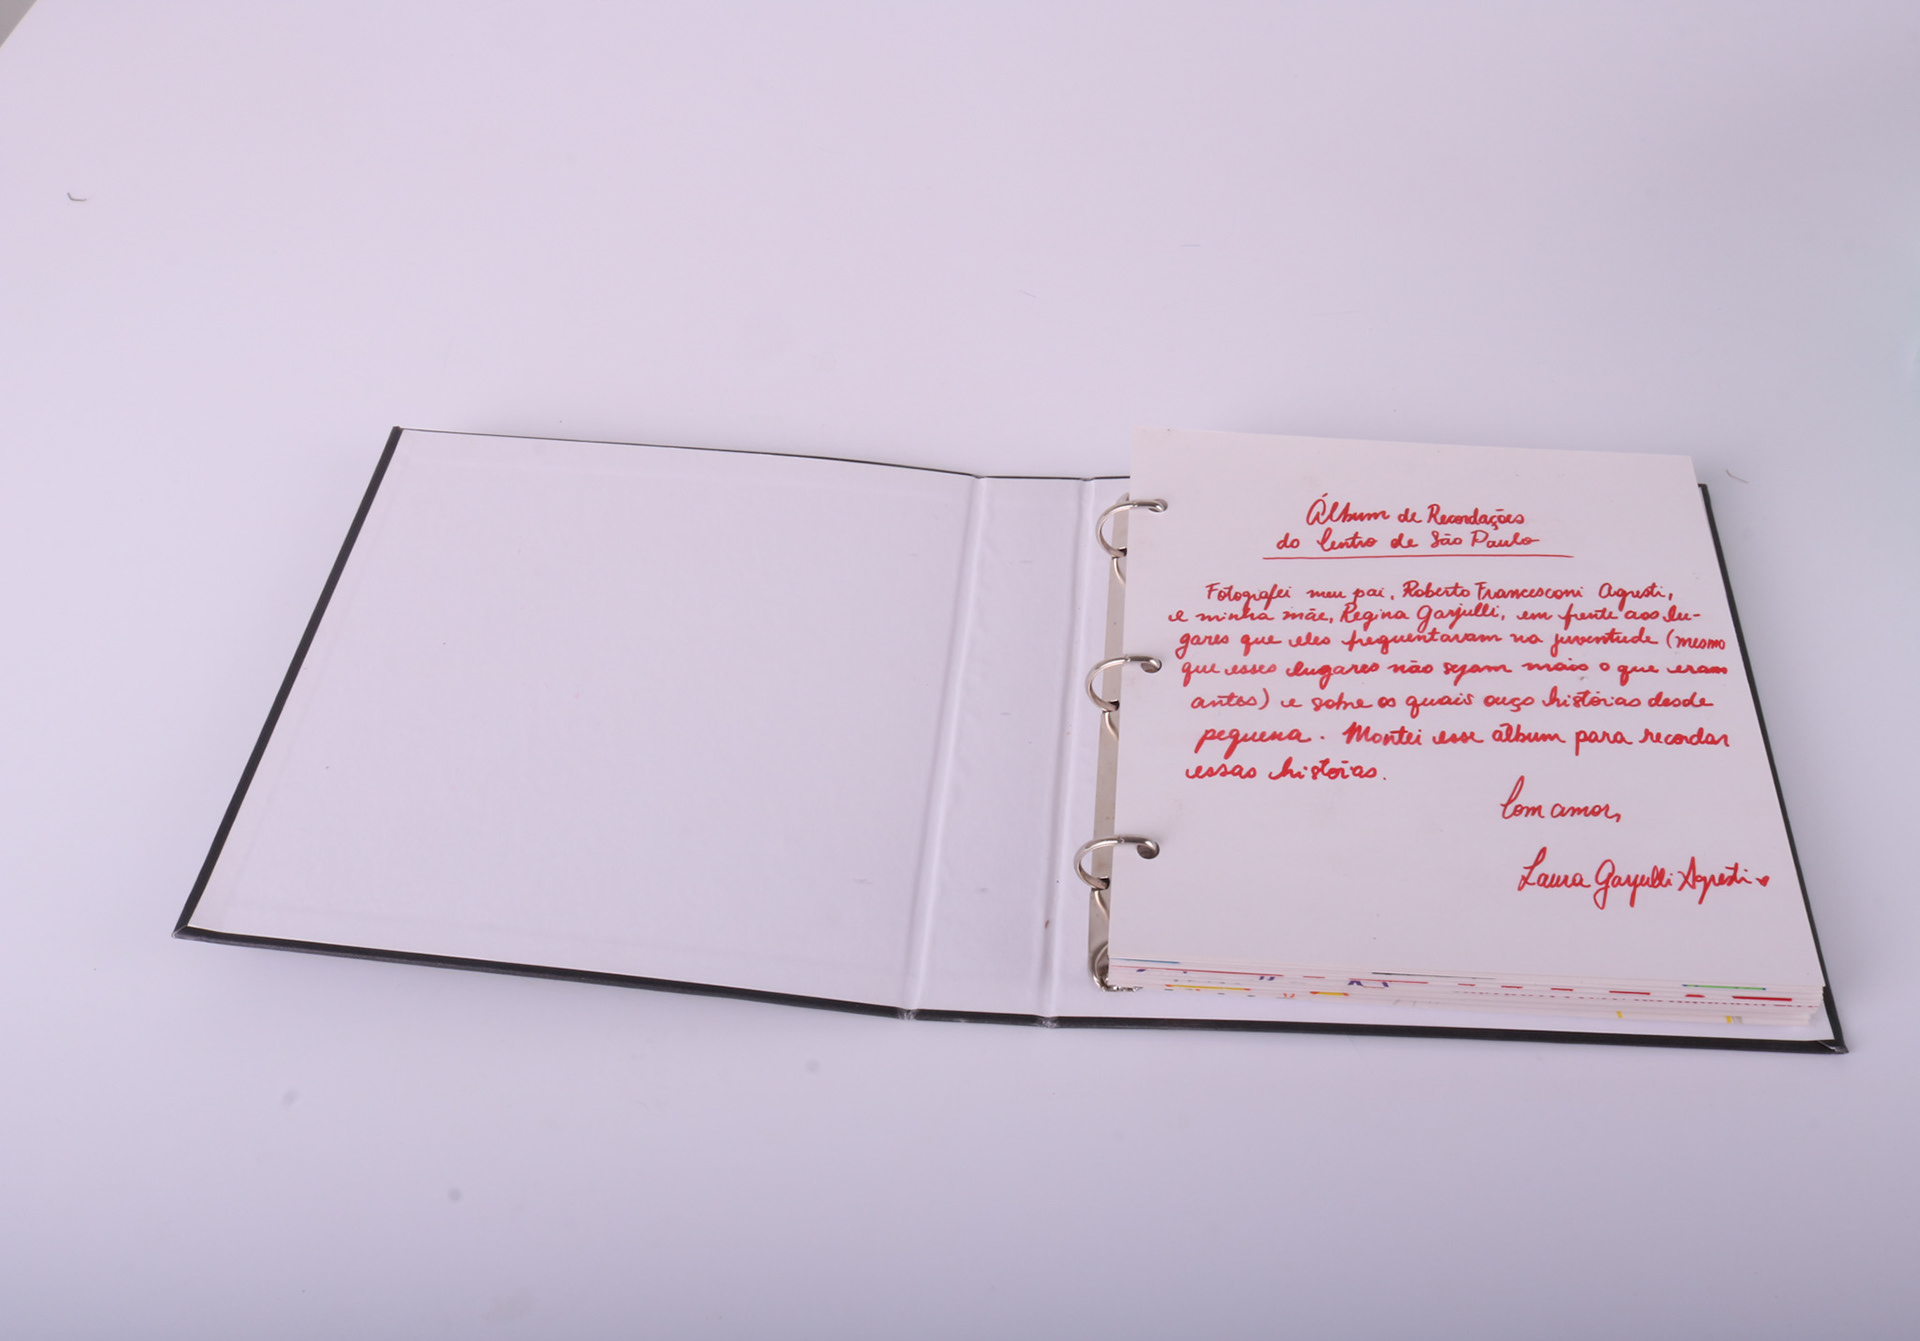 Álbum de Recordações
do Centro de São Paulo
Fotografei meu pai, Roberto Francesconi Agresti,
e minha mãe, Regina Garjulli, em frente aos lu-
gares que eles frequentavam na juventude (mesmo
que esses lugares não sejam mais o que eram
antes) e sobre os quais ouço histórias desde
pequena. Montei esse álbum para recordar
essas histórias.
Com amor,
Laura Garjulli Agresti